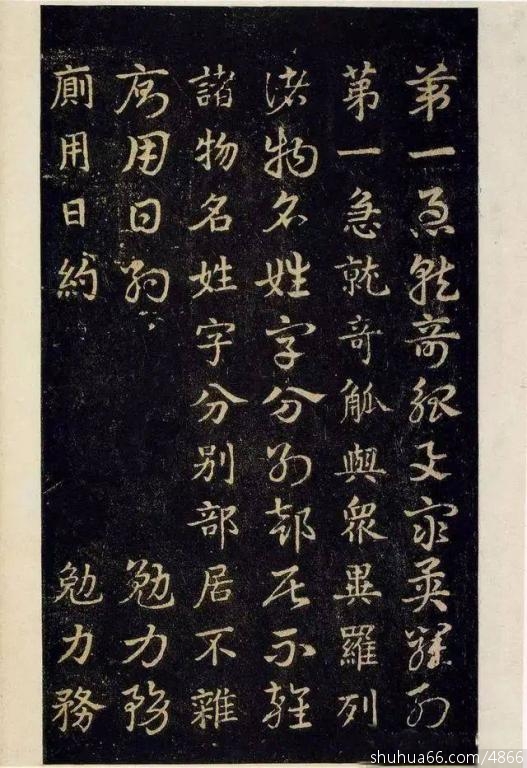 第一急就奇觚與衆異羅列
第一急就奇觚與衆異羅列
諸物名姓字分別部居不雜
諸物名姓字分別部居不雜
廁用日約 勉力務
廁用日約 勉力務
shuhua66.com/4866